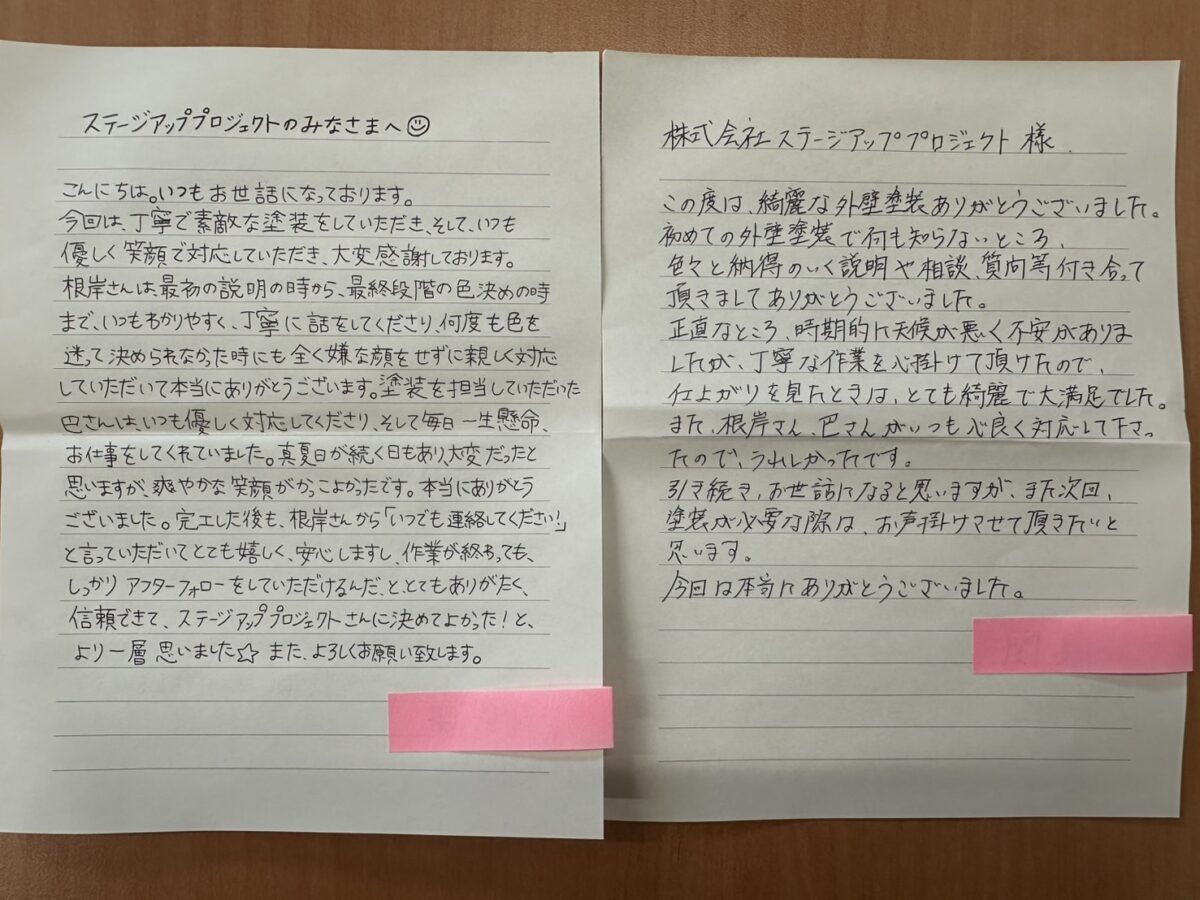 ステージアッププロジェクトのみなさまへ☺
こんにちは。いつもお世話になっております。
今回は、丁寧で素敵な塗装をしていただき、そして、いつも
優しく笑顔で対応していただき、大変感謝しております。
根岸さんは、最初の説明の時から、最終段階の色決めの時
まで、いつもわかりやすく、丁寧に話をしてくださり、何度も色を
迷って決められなかった時にも全く嫌な顔をせずに親しく対応
していただいて本当にありがとうございます。塗装を担当していただいた
巴さんは、いつも優しく対応してくださり、そして毎日一生懸命、
お仕事をしてくれていました。真夏日が続く日もあり、大変だったと
思いますが、爽やかな笑顔がかっこよかったです。本当にありがとう
ございました。完工した後も、根岸さんから「いつでも連絡してください!」
と言っていただいてとても嬉しく、安心しますし、作業が終わっても、
しっかりアフターフォローをしていただけるんだ、と、とてもありがたく、
信頼できて、ステージアッププロジェクトさんに決めてよかった!と、
より一層思いました☆ また、よろしくお願い致します。
株式会社ステージアッププロジェクト 様
この度は、綺麗な外壁塗装ありがとうございました。
初めての外壁塗装で何も知らないところ、
色々と納得のいく説明や相談、質問等付き合って
頂きましてありがとうございました。
正直なところ、時期的に天候が悪く不安がありま
したが、丁寧な作業を心掛けて頂けたので、
仕上がりを見たときは、とても綺麗で大満足でした。
また、根岸さん、巴さんがいつも心良く対応して下さっ
たので、うれしかったです。
引き続き、お世話になると思いますが、また次回、
塗装が必要な際は、お声掛けさせて頂きたいと
思います。
今回は本当にありがとうございました。